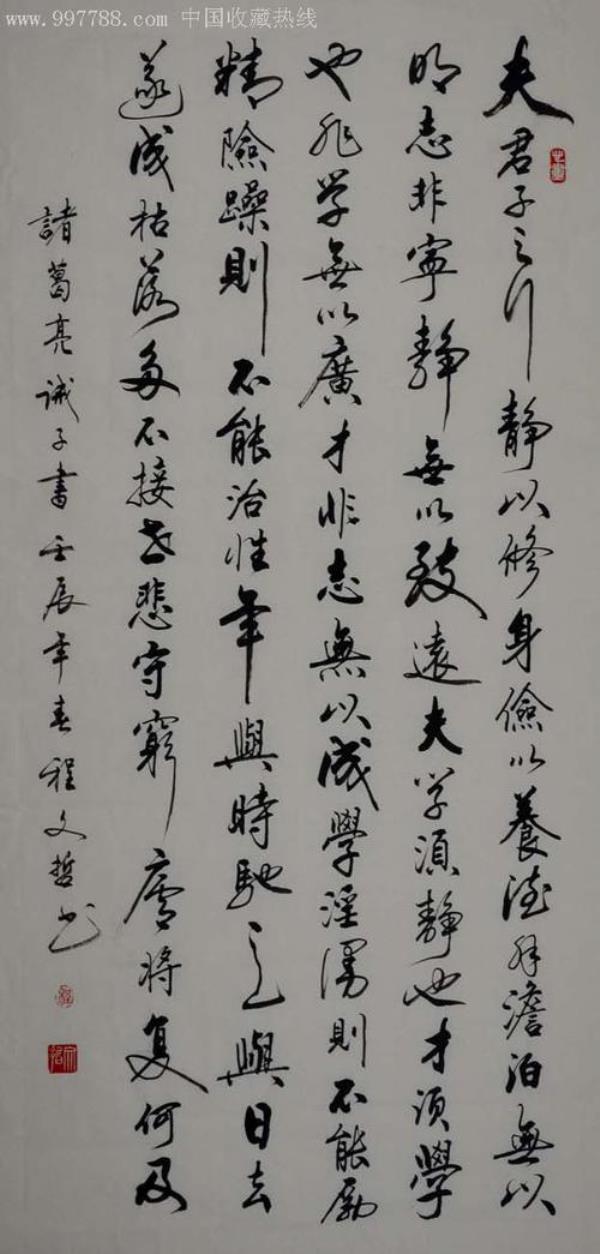 中国收藏热线
www.997788.com
夫君子之行静以修身儉以養德非澹泊無以
明志非寧静無以致遠夫学須静也才須學
也非学無以廣才非志無以成學淫漫則不能勵
精險躁則不能治性年與時馳意與日去
遂成枯落多不接世悲守窮廬將复何及
諸葛亮诫子書壬辰年春程文哲书